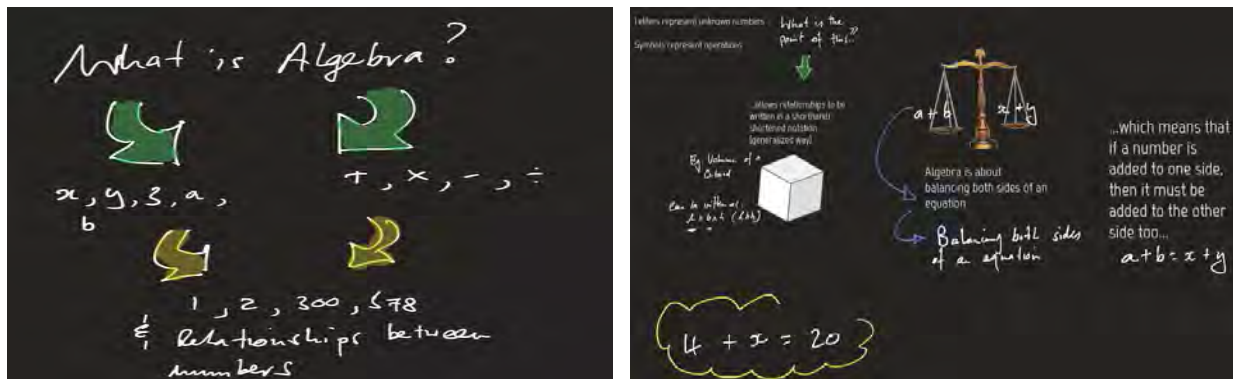 What is Algebra?
x, y, 3, a,
b
+, ×, -, ÷
1, 2, 300, 578
& Relationships between
numbers
Letters represent unknown numbers
Symbols represent operations
What is the
point of this?
...allows relationships to be
written in a shorthand
shortened notation
(generalized way)
Eg Volume of a
Cuboid
Can be written as
a + b
x + y
Algebra is about
balancing both sides of an
equation
Balancing both sides
of an equation
...which means that
if a number is
added to one side,
then it must be
added to the other
side too...
a+b=x+y
4 + x = 20